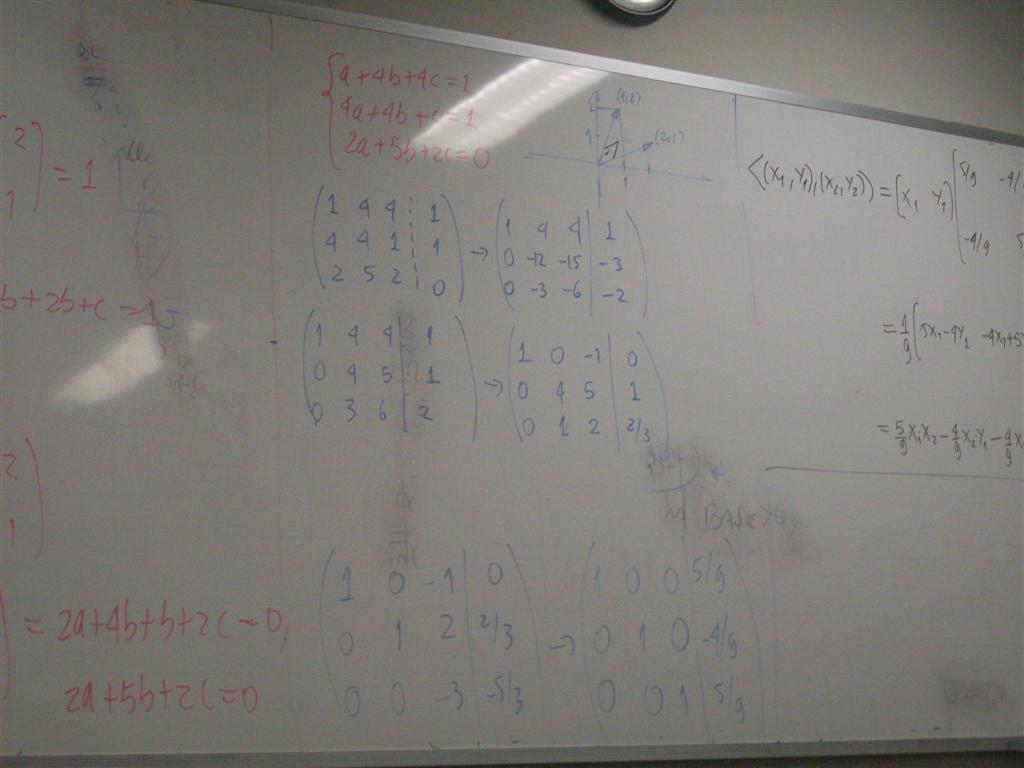 2
1
= 1
b+2b+c=1
2
1
= 2a+4b+b+2c=0,
2a+5b+2c=0
a+4b+4c=1
4a+4b+c=1
2a+5b+2c=0
2
1
(1,2)
(2,1)
1
1 4 4 1
4 4 1 1
2 5 2 0
→
1 4 4 1
0 -12 -15 -3
0 -3 -6 -2
1 4 4 1
0 4 5 1
0 3 6 2
→
1 0 -1 0
0 4 5 1
0 1 2 2/3
1 0 -1 0
0 1 2 2/3
0 0 -3 -5/3
→
1 0 0 5/9
0 1 0 -4/9
0 0 1 5/9
<(x1,y1),(x2,y2)> = [x1 y1] [5/9 -4/
-4/9 5
= 1/9 [5x1-4y1 -4x1+5y
= 5/9 x1x2 - 4/9 x2y1 - 4/9 x